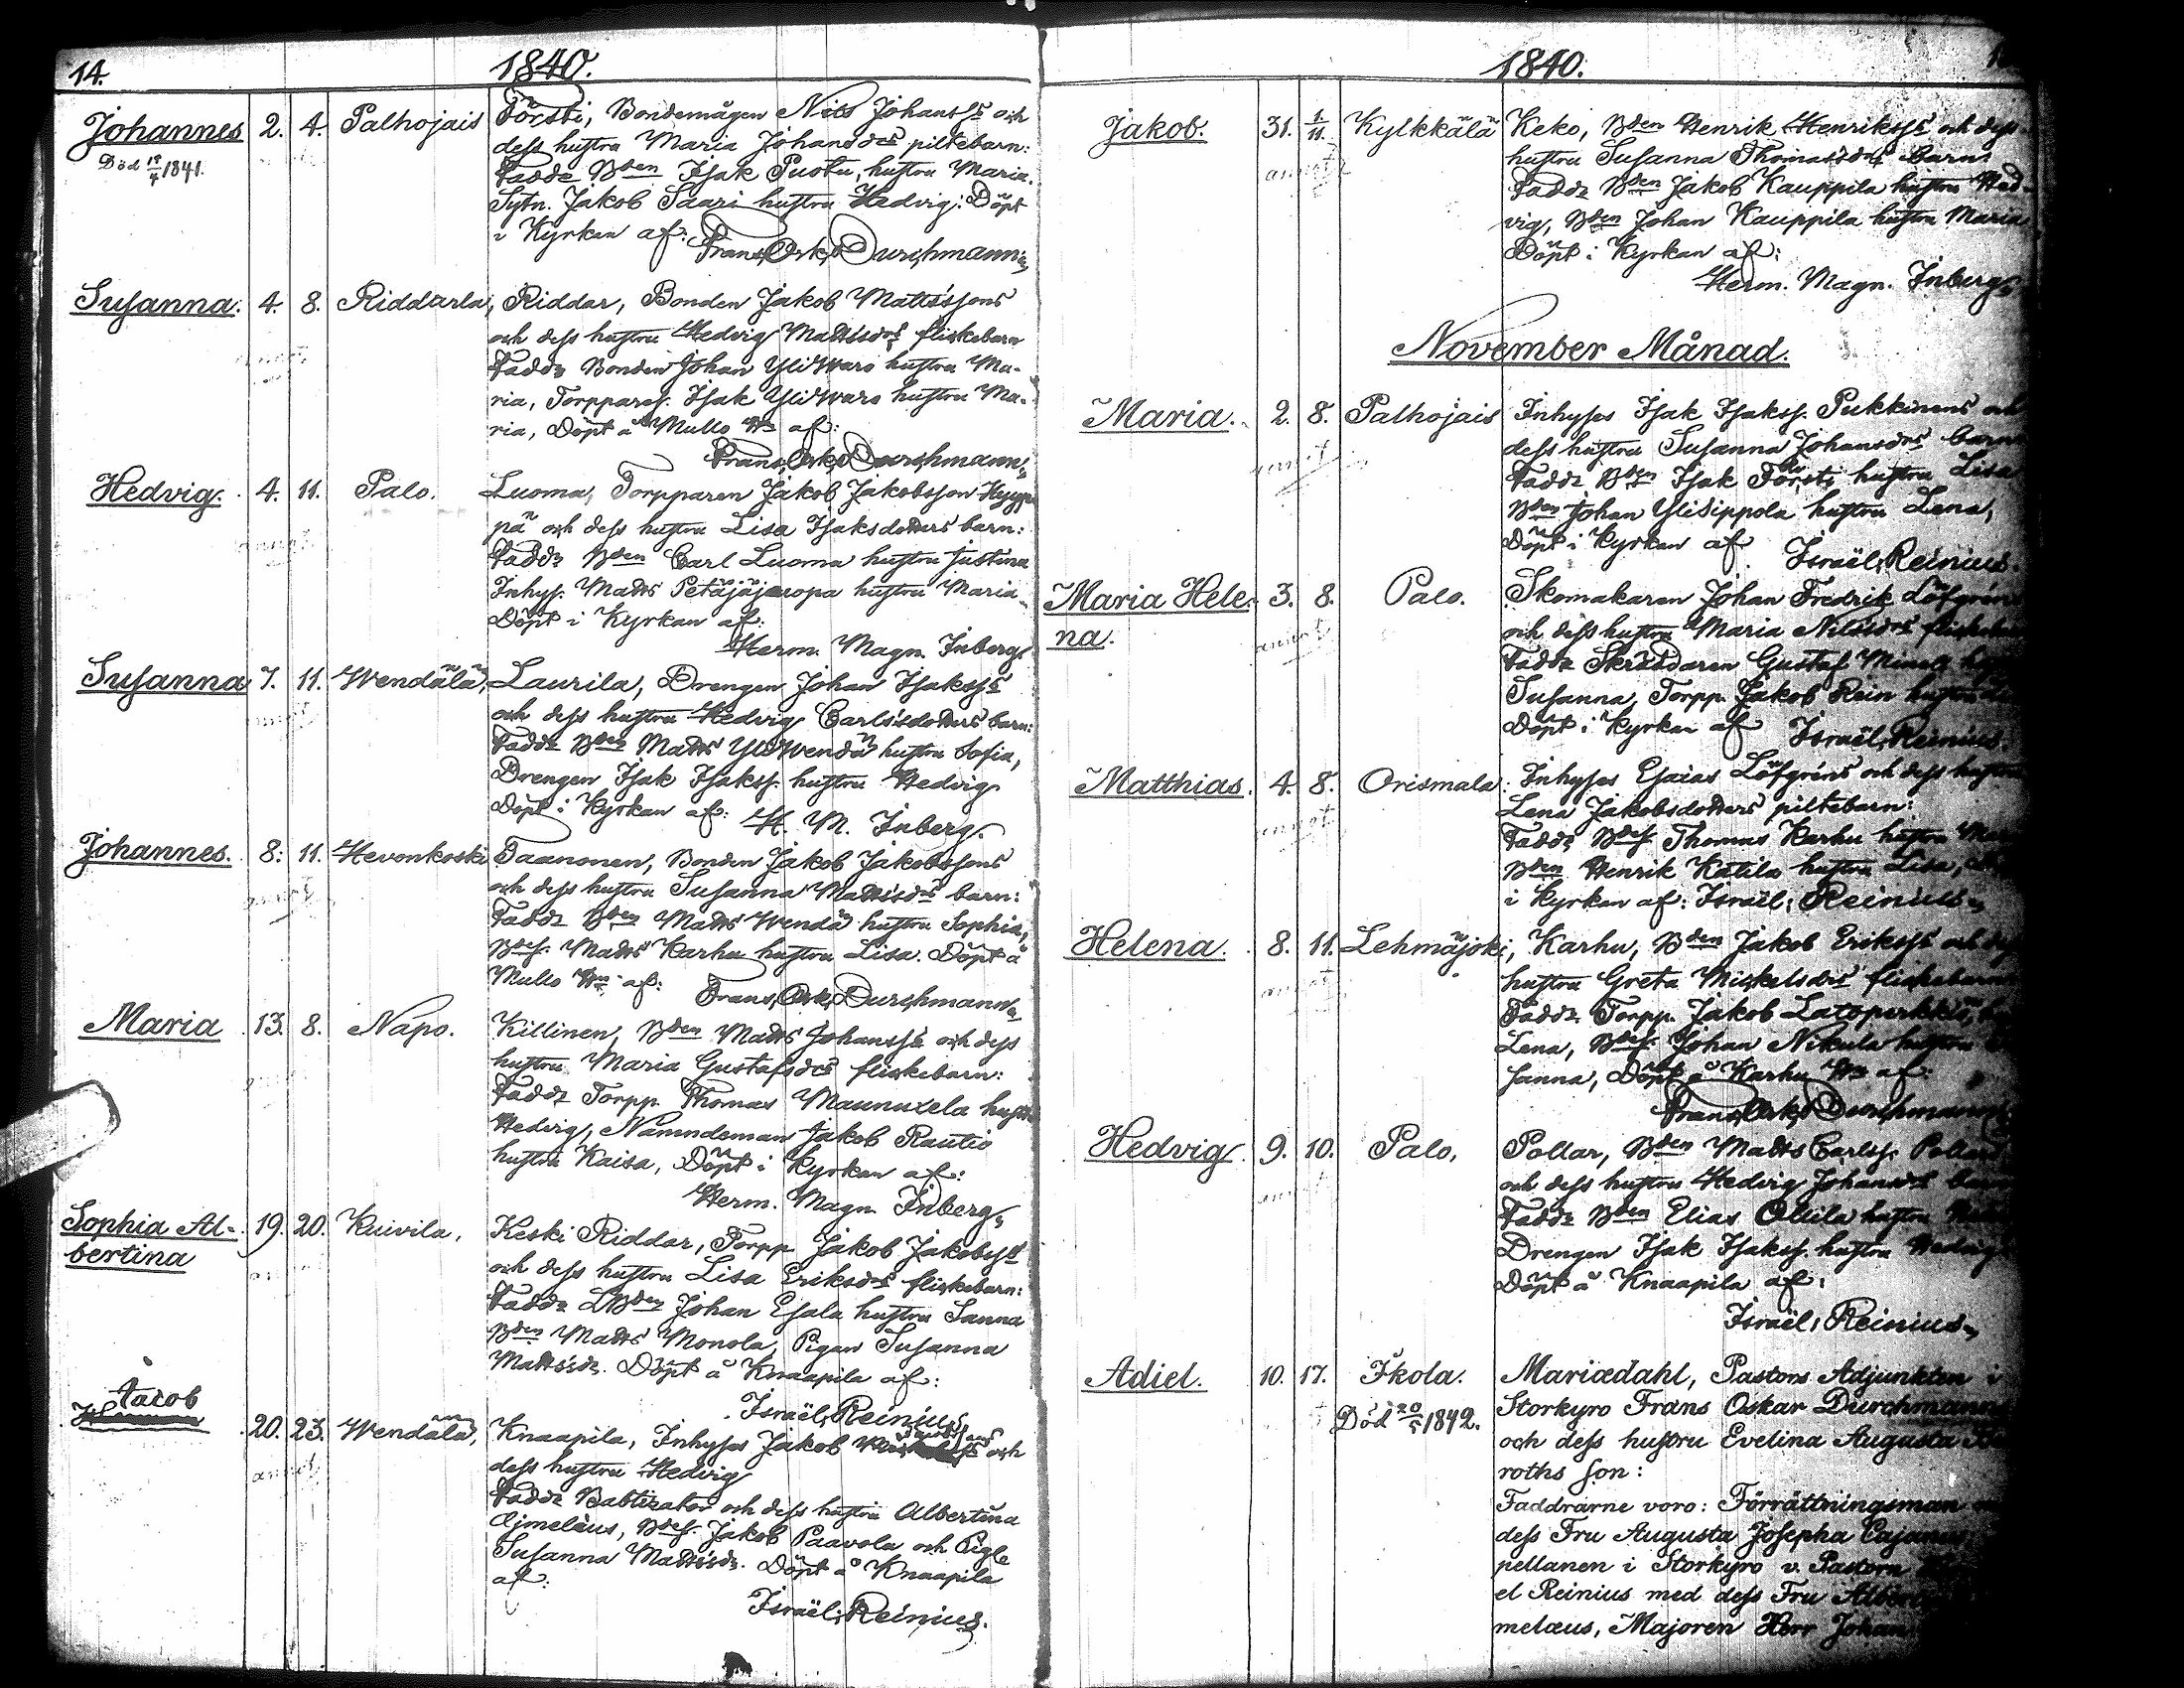 14.
1840.
Johannes 2. 4. Palhojais Försti, Bondemågen Nils Johanss:s och
Död 19/4 1841. dess hustru Maria Johansdrs piltebarn:
Faddr Bden Isak Puotu, hustru Maria.
Sytn. Jakob Saari hustru Hedvig: Döpt
i Kyrkan af:
Frans Osk. Durchmann
Susanna. 4. 8. Riddarla, Riddar, Bonden Jakob Mattssons
och dess hustru Hedvig Mattsdrs flickebarn
Faddr Bonden Johan Yliwaro hustru Ma-
ria, Torpparss. Isak Yliwaro hustru Ma-
ria, Döpt å Mullo af:
Frans Osk. Durchmann
Hedvig. 4. 11. Palo. Luoma, Torpparen Jakob Jakobsson Hyyp-
pä och dess hustru Lisa Isaksdotters barn:
Faddr Bden Carl Luoma hustru Justina
Inhys. Matts Petäjäjaropa hustru Maria
Döpt i Kyrkan af:
Herm. Magn. Inberg
Susanna 7. 11. Wendälä, Laurila, Drengen Johan Isakss:s
och dess hustru Hedvig Carlsdotters barn:
Faddr Bden Matts Yliwendä hustru Sofia,
Drengen Isak Isakss. hustru Hedvig
Döpt i Kyrkan af: H. M. Inberg.
Johannes. 8. 11. Hevonkoski Taanonen, Bonden Jakob Jakobssons
och dess hustru Susanna Mattsdrs barn:
Faddr Bden Matts Wendä hustru Sophia,
Bdess. Matts Karhu hustru Lisa. Döpt å
Mullo af:
Frans Osk. Durchmann
Maria 13. 8. Napo. Killinen, Bden Matts Johanss:s och dess
hustru Maria Gustafsdrs flickebarn:
Faddr Torpp. Thomas Maunuxela hustru
Hedvig, Nämndeman Jakob Rautio
hustru Kaisa, Döpt i Kyrkan af:
Herm. Magn. Inberg
Sophia Al- 19. 20. Kuivila, Keski Riddar, Torpp Jakob Jakobss:s
bertina och dess hustru Lisa Eriksdrs flickebarn:
Faddr LBden Johan Esala hustru Sanna
Bden Matts Monola, Pigan Susanna
Mattsdr. Döpt å Knaapila af:
Israël Reinius
Jacob 20. 23. Wendälä, Knaapila, Inhyses Jakob och
dess hustru Hedvig
Faddr Babtizator och dess hustru Albertina
Ajmelæus, Bdess. Jakob Paavola och Pig.
Susanna Mattsdr. Döpt å Knaapila
af:
Israël Reinius.
1840.
Jakob. 31. 1/11. Kylkkälä Keko, Bden Henrik Henrikss:s och dess
hustru Susanna Thomasdrs barn:
Faddr Bden Jakob Kauppila hustru Hed-
vig, Bden Johan Kauppila hustru Maria
Döpt i Kyrkan af:
Herm. Magn. Inberg
November Månad.
Maria. 2. 8. Palhojais Inhyses Isak Isakss. Pukkinens och
dess hustru Susanna Johansdrs barn
Faddr Bden Isak Försti hustru Lisa
Bden Johan Ylisippola hustru Lena,
Döpt i Kyrkan af Israël Reinius.
Maria Hele- 3. 8. Palo. Skomakaren Johan Fredrik Löfgréns
na. och dess hustru Maria Nilsdrs
Faddr Skräddaren Gustaf
Susanna, Torpp. Jakob Rein hustru
Döpt i Kyrkan af Israël Reinius.
Matthias. 4. 8. Orismala. Inhyses Esaias Löfgréns och dess hustru
Lena Jakobsdotters piltebarn:
Faddr Bdess Thomas Karhu hustru
Bden Henrik Katila hustru Lisa,
i Kyrkan af: Israël Reinius
Helena. 8. 11. Lehmäjoki, Karhu, Bden Jakob Erikss:s och
hustru Greta Mickelsdrs flickebarn
Faddr. Torpp. Jakob Latopirkkiö,
Lena, Bdess. Johan Nikula hustru
sanna, Döpt å Karhu af
Frans Osk. Durchmann
Hedvig 9. 10. Palo, Pollar, Bden Matts Carlss.
och dess hustru Hedvig Johansdrs
Faddr Bden Elias Ollila hustru
Drengen Isak Isakss. hustru Hedvig
Döpt å Knaapila af:
Israël Reinius
Adiel. 10. 17. Ikola. Mariædahl, Pastors Adjunkten i
Död 20/5 1842. Storkyro Frans Oskar Durchmanns
och dess hustru Evelina Augusta
roths son:
Faddrarne voro: Förrättningsman
dess Fru Augusta Josepha Cajanus,
pellanen i Storkyro v. Pastorn
el Reinius med dess Fru
melæus, Majoren Herr Johan